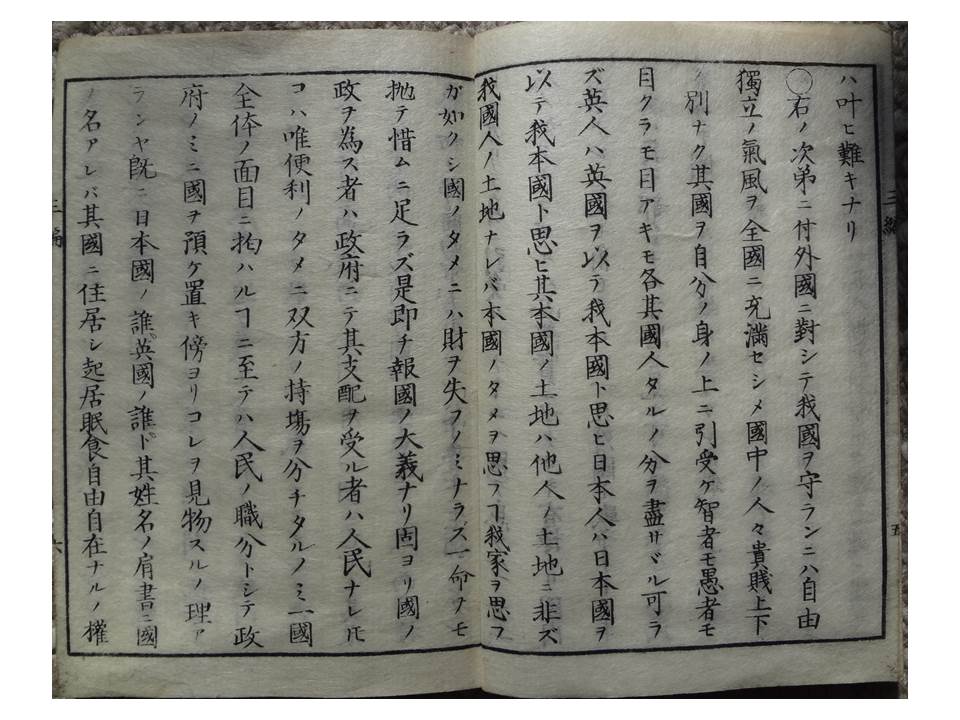 ハ叶ヒ難キナリ
○右ノ次第ニ付外國ニ對シテ我國ヲ守ランニハ自由
獨立ノ氣風ヲ全國ニ充滿セシメ國中ノ人々貴賤上下
ノ別ナク其國ヲ自分ノ身ノ上ニ引受ケ智者モ愚者モ
目クラモ目アキモ各其國人タルノ分ヲ盡サヾル可ラ
ズ英人ハ英國ヲ以テ我本國ト思ヒ日本人ハ日本國ヲ
以テ我本國ト思ヒ其本國ノ土地ハ他人ノ土地ニ非ズ
我國人ノ土地ナレバ本國ノタメヲ思フヿ我家ヲ思フ
ガ如クシ國ノタメニハ財ヲ失フノミナラズ一命ヲモ
抛テ惜ムニ足ラズ是即チ報國ノ大義ナリ固ヨリ國ノ
政ヲ為ス者ハ政府ニテ其支配ヲ受ル者ハ人民ナレ𪜈
コハ唯便利ノタメニ双方ノ持塲ヲ分チタルノミ一國
全体ノ面目ニ拘ハルヿニ至テハ人民ノ職分トシテ政
府ノミニ國ヲ預ケ置キ傍ヨリコレヲ見物スルノ理ア
ランヤ既ニ日本國ノ誰英國ノ誰ト其姓名ノ肩書ニ國
ノ名アレバ其國ニ住居シ起居眠食自由自在ナルノ權
三編
五
三編
六